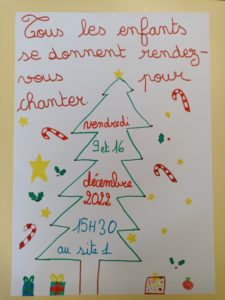 Tous les enfants
se donnent rendez-
vous pour
chanter.
vendredi
9 et 16
décembre
2022
15H30
au site 1